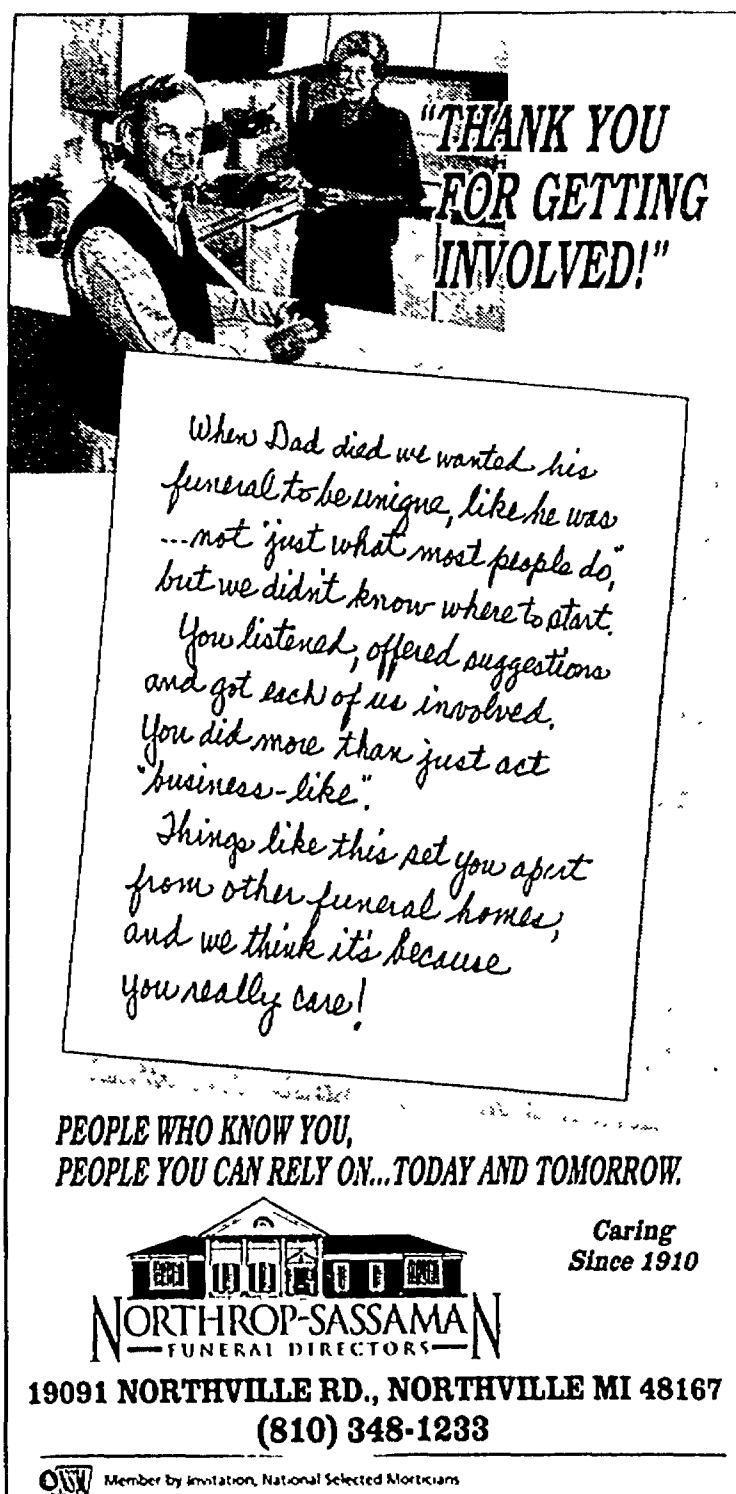 "THANK YOU
FOR GETTING
INVOLVED!"
When Dad died we wanted his
funeral to be unique, like he was
...not "just what most people do,"
but we didn't know where to start.
You listened, offered suggestions
and got each of us involved.
You did more than just act
"business-like".
Things like this set you apart
from other funeral homes,
and we think it's because
you really care!
PEOPLE WHO KNOW YOU,
PEOPLE YOU CAN RELY ON...TODAY AND TOMORROW.
Caring
Since 1910
NORTHROP-SASSAMAN
FUNERAL DIRECTORS
19091 NORTHVILLE RD., NORTHVILLE MI 48167
(810) 348-1233
Member by Invitation, National Selected Morticians